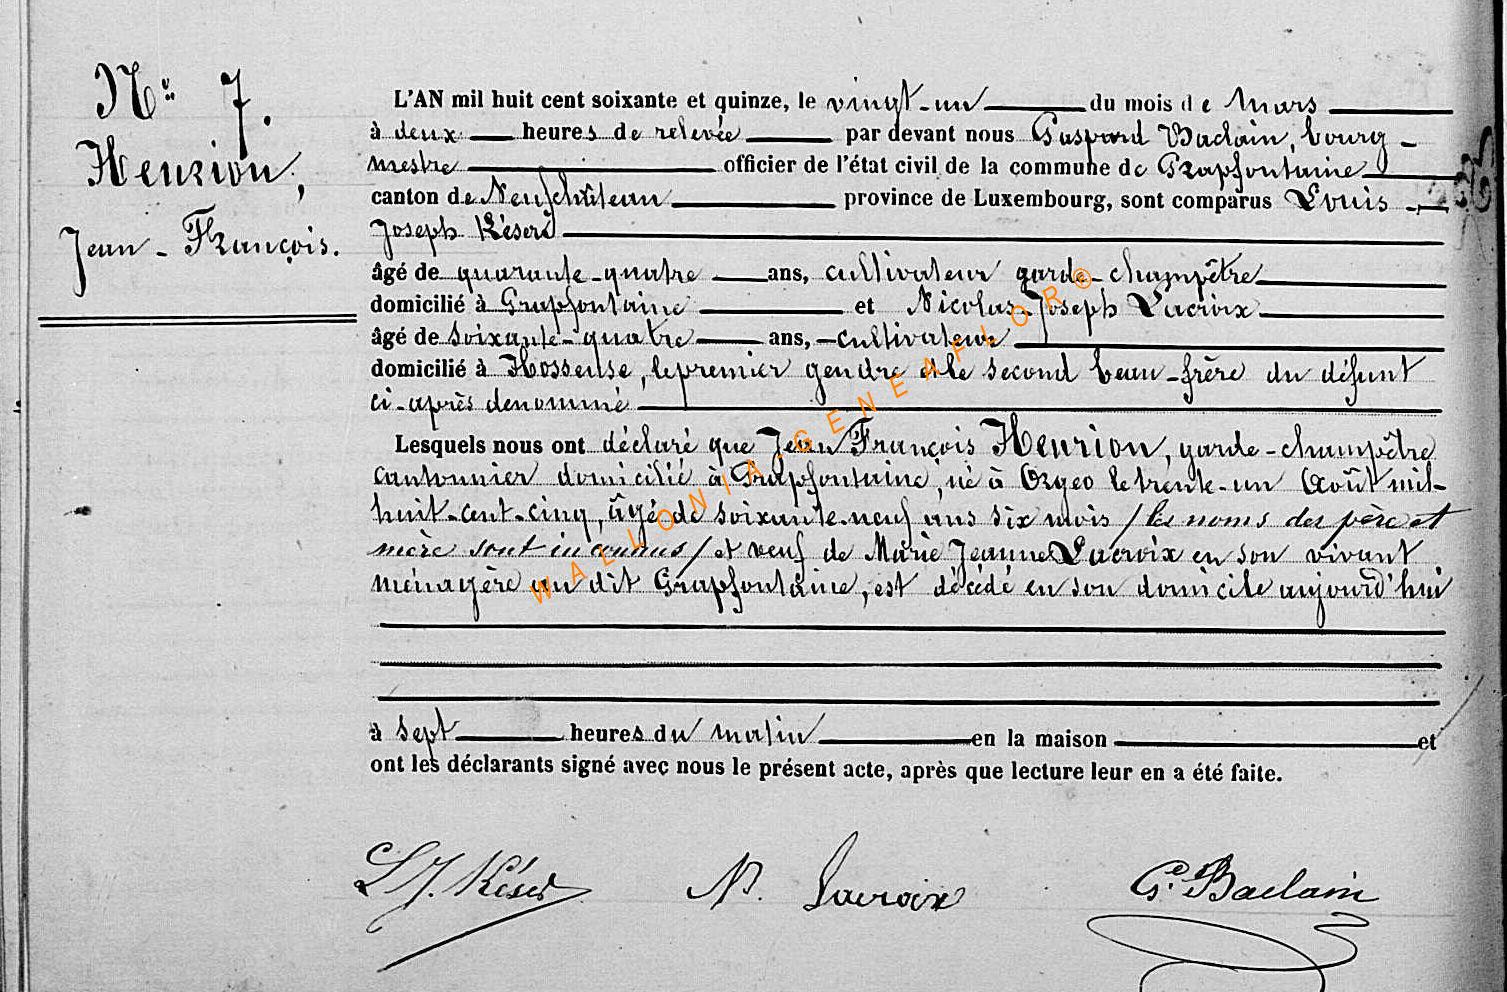 N° 7.
Henrion,
Jean-François.
L'AN mil huit cent soixante et quinze, le vingt-un du mois de Mars
à deux heures de relevée par devant nous Gaspard Baclain, bourg-
mestre officier de l'état civil de la commune de Grapfontaine
canton de Neufchâteau province de Luxembourg, sont comparus Louis
Joseph Késer
âgé de quarante-quatre ans, cultivateur garde-champêtre
domicilié à Grapfontaine et Nicolas-Joseph Lacroix
âgé de soixante-quatre ans, cultivateur
domicilié à Hosseuse, le premier gendre et le second beau-frère du défunt
ci-après dénommé
Lesquels nous ont déclaré que Jean François Henrion, garde-champêtre
cantonnier domicilié à Grapfontaine, né à Orgeo le trente-un Août mil-
huit-cent-cinq, âgé de soixante-neuf ans six mois / les noms des père et
mère sont inconnus / et veuf de Marie Jeanne Lacroix en son vivant
ménagère au dit Grapfontaine, est décédé en son domicile aujourd'hui
à sept heures du matin en la maison et
ont les déclarants signé avec nous le présent acte, après que lecture leur en a été faite.
L J. Késer N. Lacroix G. Baclain
WALLONIA-GENEAFLOR©